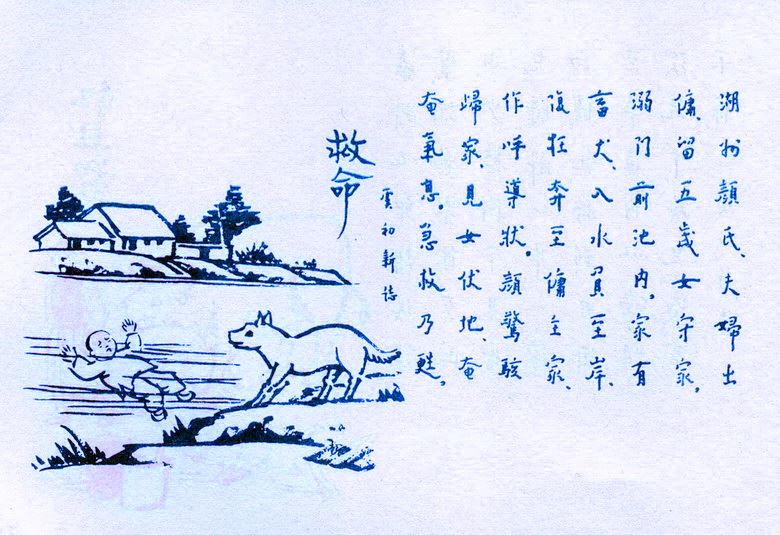 湖州顏氏、夫婦出
傭、留五歲女守家。
溺門前池內。家有
畜犬、入水負至岸、
復狂奔至傭主家、
作呼導狀。顏驚駭
歸家、見女伏地、奄
奄氣息。急救乃甦。
虞初新誌
救命